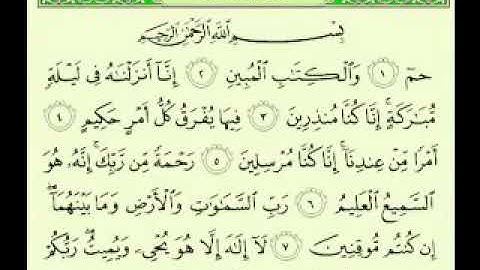 بِسْمِ اللَّهِ الرَّحْمَٰنِ الرَّحِيمِ
حمٓ ١ وَالْكِتَابِ الْمُبِينِ ٢ إِنَّآ أَنزَلْنَـٰهُ فِى لَيْلَةٍ
مُّبَـٰرَكَةٍ ۚ إِنَّا كُنَّا مُنذِرِينَ ٣ فِيهَا يُفْرَقُ كُلُّ أَمْرٍ حَكِيمٍ ٤
أَمْرًا مِّنْ عِندِنَآ ۚ إِنَّا كُنَّا مُرْسِلِينَ ٥ رَحْمَةً مِّن رَّبِّكَ ۚ إِنَّهُۥ هُوَ
السَّمِيعُ الْعَلِيمُ ٦ رَبِّ السَّمَـٰوَٰتِ وَالْأَرْضِ وَمَا بَيْنَهُمَآ ۖ
إِن كُنتُم مُّوقِنِينَ ٧ لَآ إِلَـٰهَ إِلَّا هُوَ يُحْىِۦ وَيُمِيتُ ۖ رَبُّكُمْ